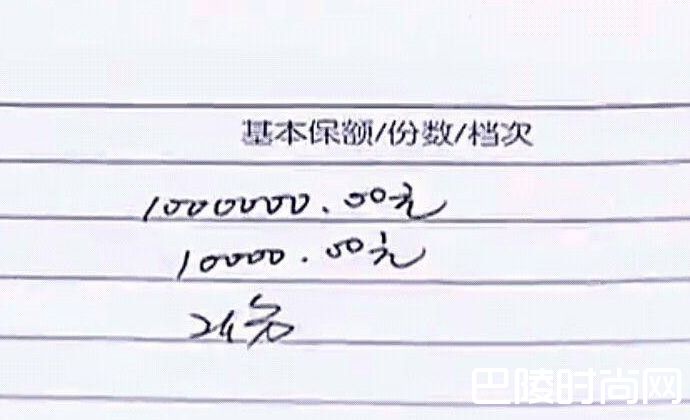 基本保额/份数/档次
1000000.00元
10000.00元
巴陵时尚网